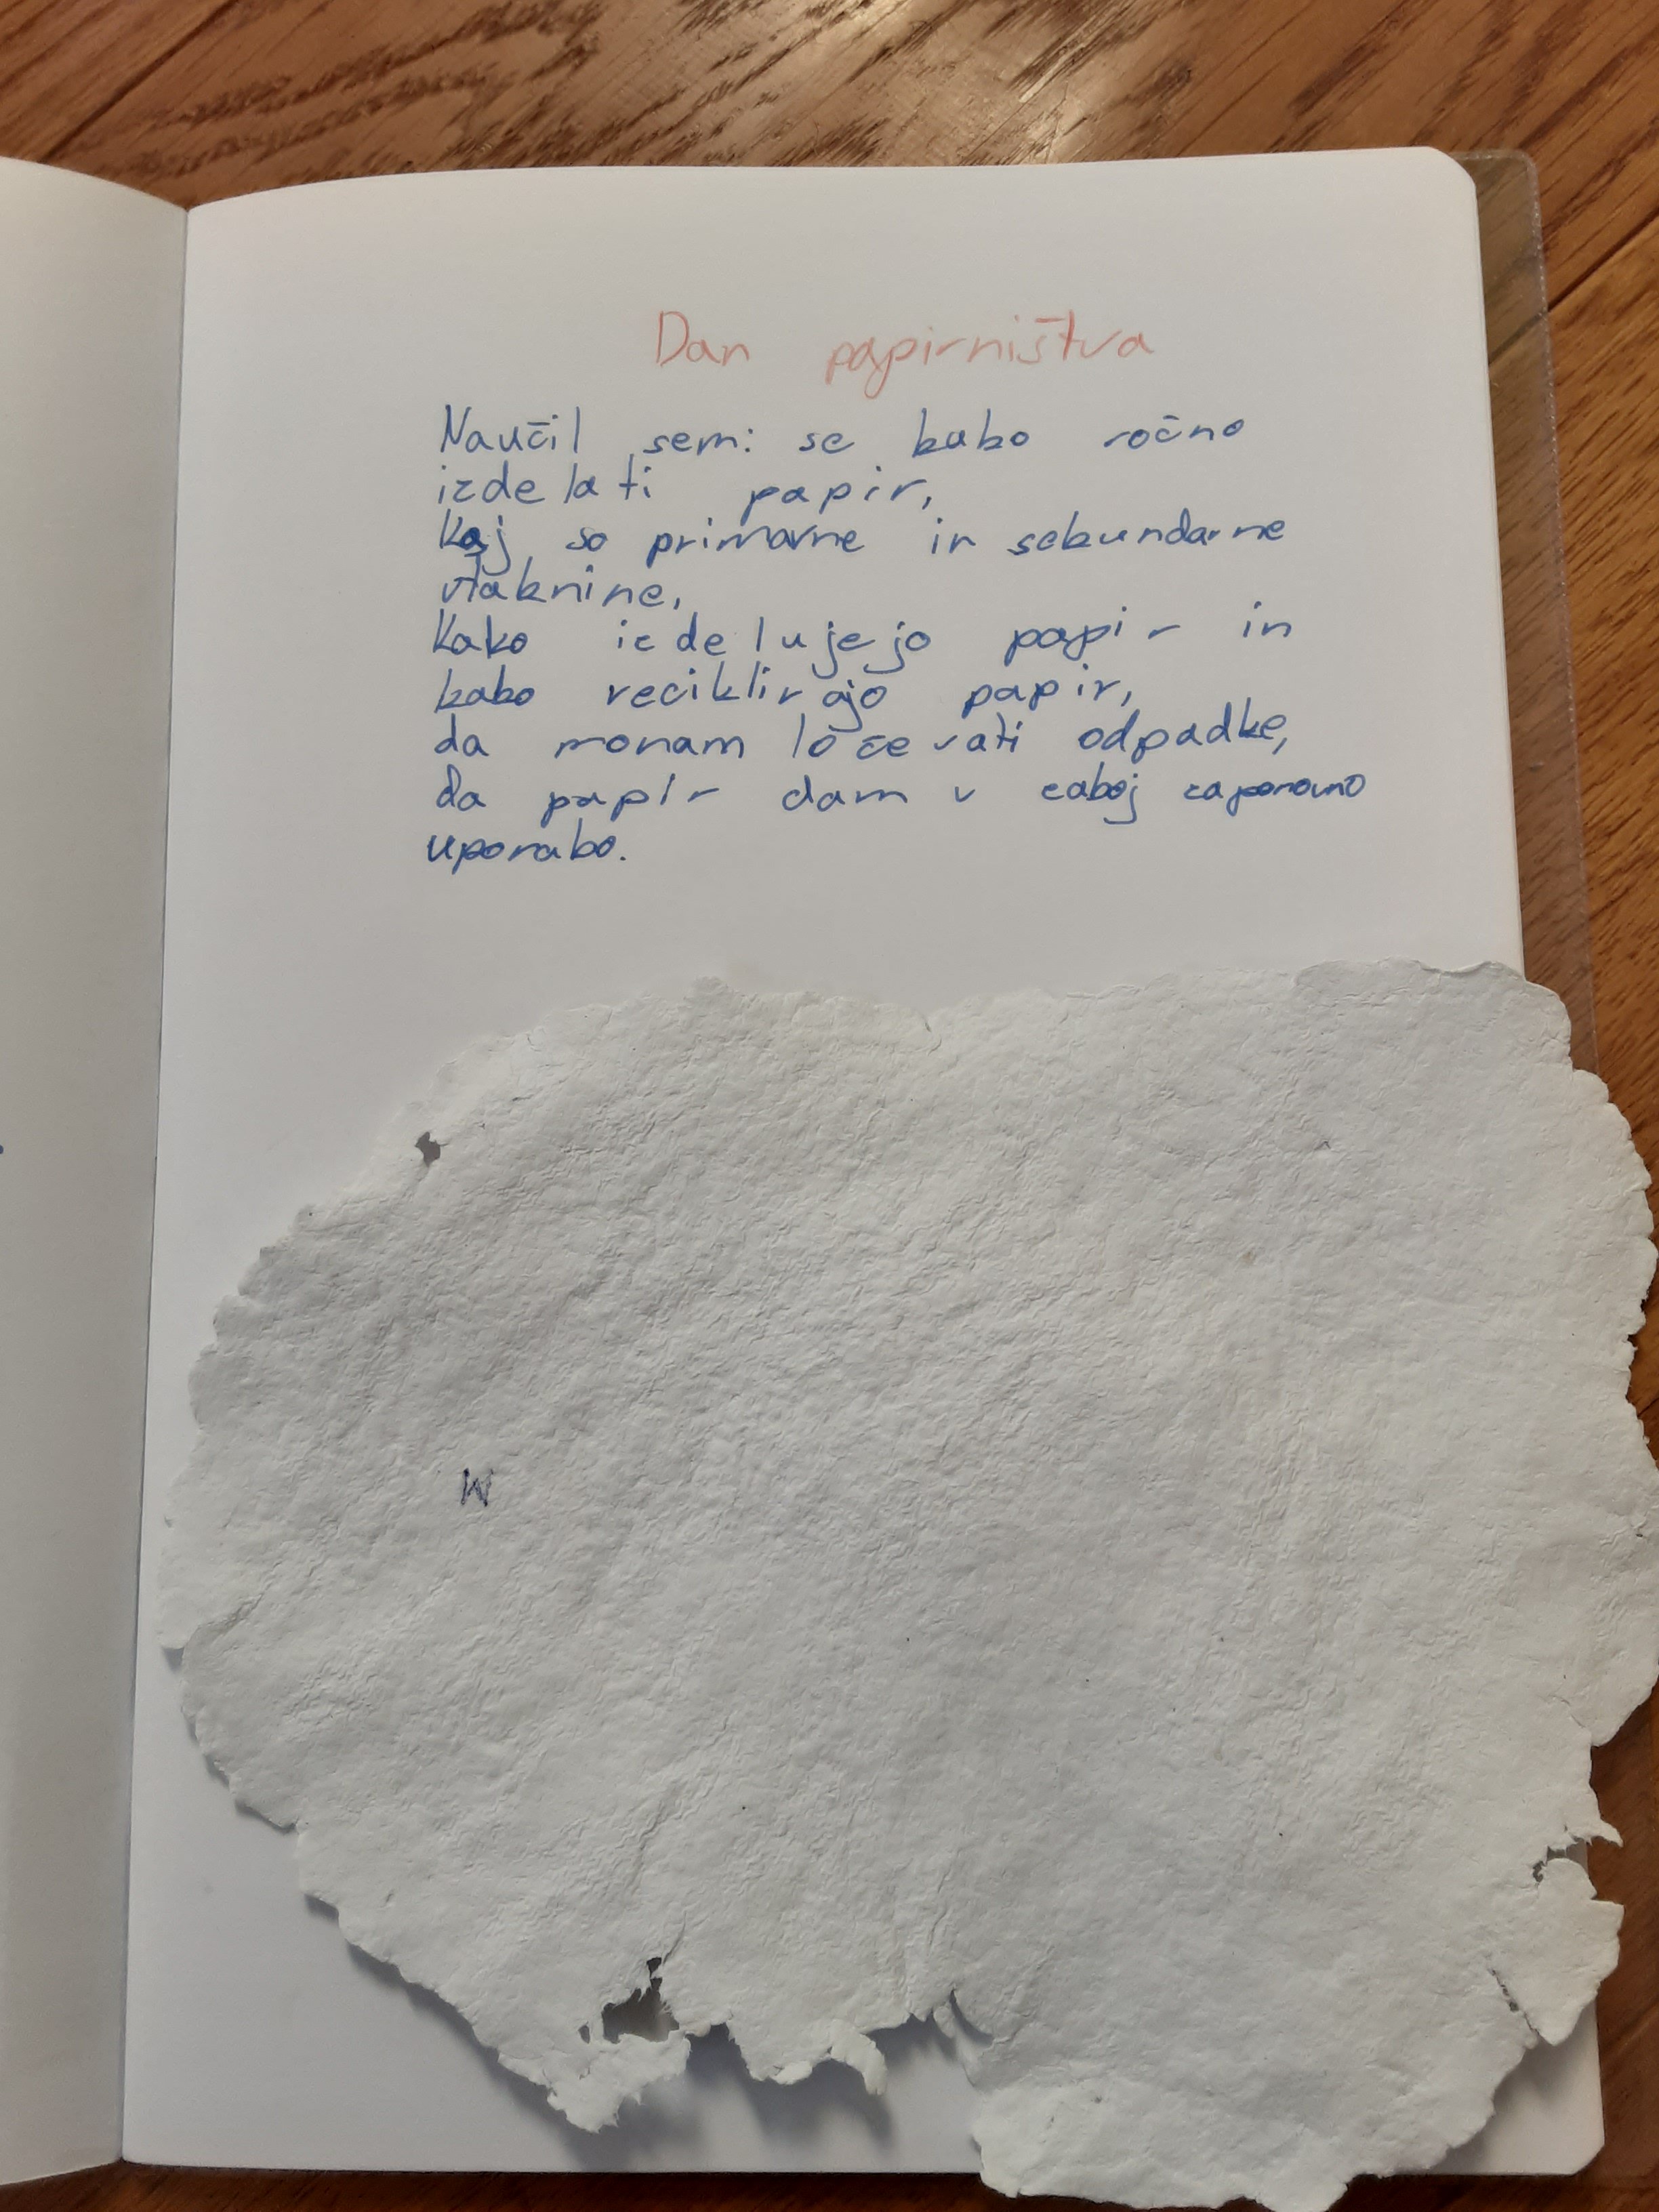 Dan papirništva
Naučil sem: se kako ročno
izdelati papir,
Kaj so primarne in sekundarne
vlaknine,
Kako izdelujejo papir in
kako reciklirajo papir,
da monam ločevati odpadke,
Da papir dam v zaboj zaponovno
uporabo.
M